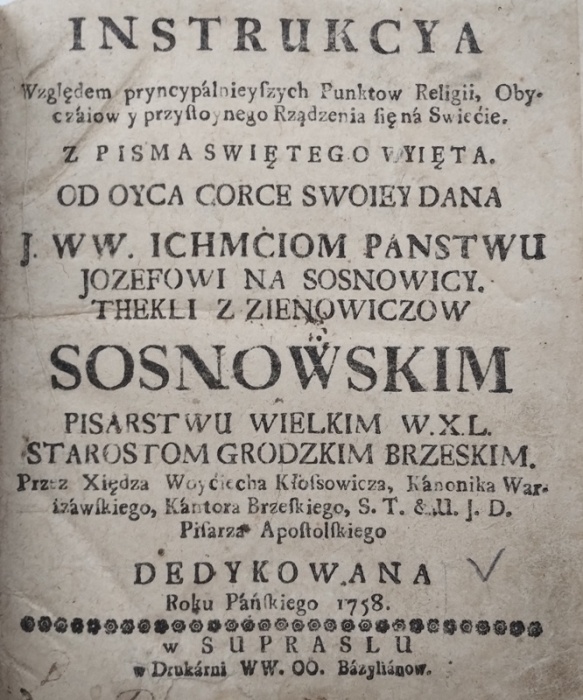 INSTRUKCYA
Względem pryncypálnieyſzych Punktow Religii, Oby-
czáiow y przyſtoynego Rządzenia ſię ná Swiećie.
Z PISMA SWIĘTEGO WYIĘTA.
OD OYCA CORCE SWOIEY DANA
J. WW. ICHMĊIOM PANSTWU
JOZEFOWI NA SOSNOWICY.
THEKLI Z ZIENOWICZOW
SOSNOWSKIM
PISARSTWU WIELKIM W.X.L.
STAROSTOM GRODZKIM BRZESKIM.
Przez Xiędza Woyćiecha Kłoſsowicza, Kánonika War-
ſzáwſkiego, Kántora Brzeſkiego, S. T. & U. J. D.
Piſarza Apoſtolſkiego
DEDYKOWANA
Roku Páńſkiego 1758.
w SUPRASLU
w Drukárni WW. OO. Bázyliánow.